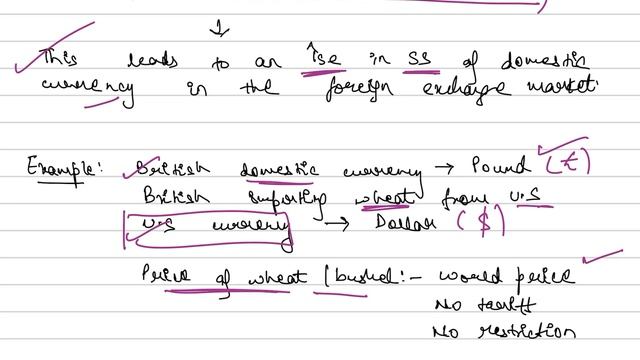 This leads to an ↑se in SS of domestic
currency in the foreign exchange market.
Example: British domestic currency → Pound (£)
British importing wheat from U.S
U.S currency → Dollar ($)
Price of wheat / bushel:- world price
No tariff
No restriction